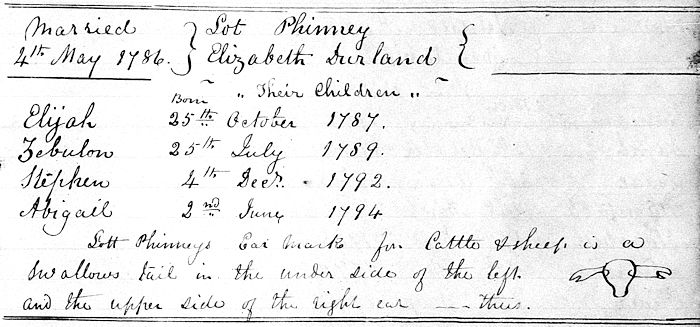 Married } Lot Phinney {
4th May 1786. } Elizabeth Durland {
Born „ Their Children „
Elijah 25th October 1787.
Zebulon 25th July 1789.
Stephen 4th Decr. 1792.
Abigail 2nd June 1794
Lott Phinneys Ear Mark for Cattle & sheep is a
Swallows tail in the under side of the left
and the upper side of the right ear — thus.